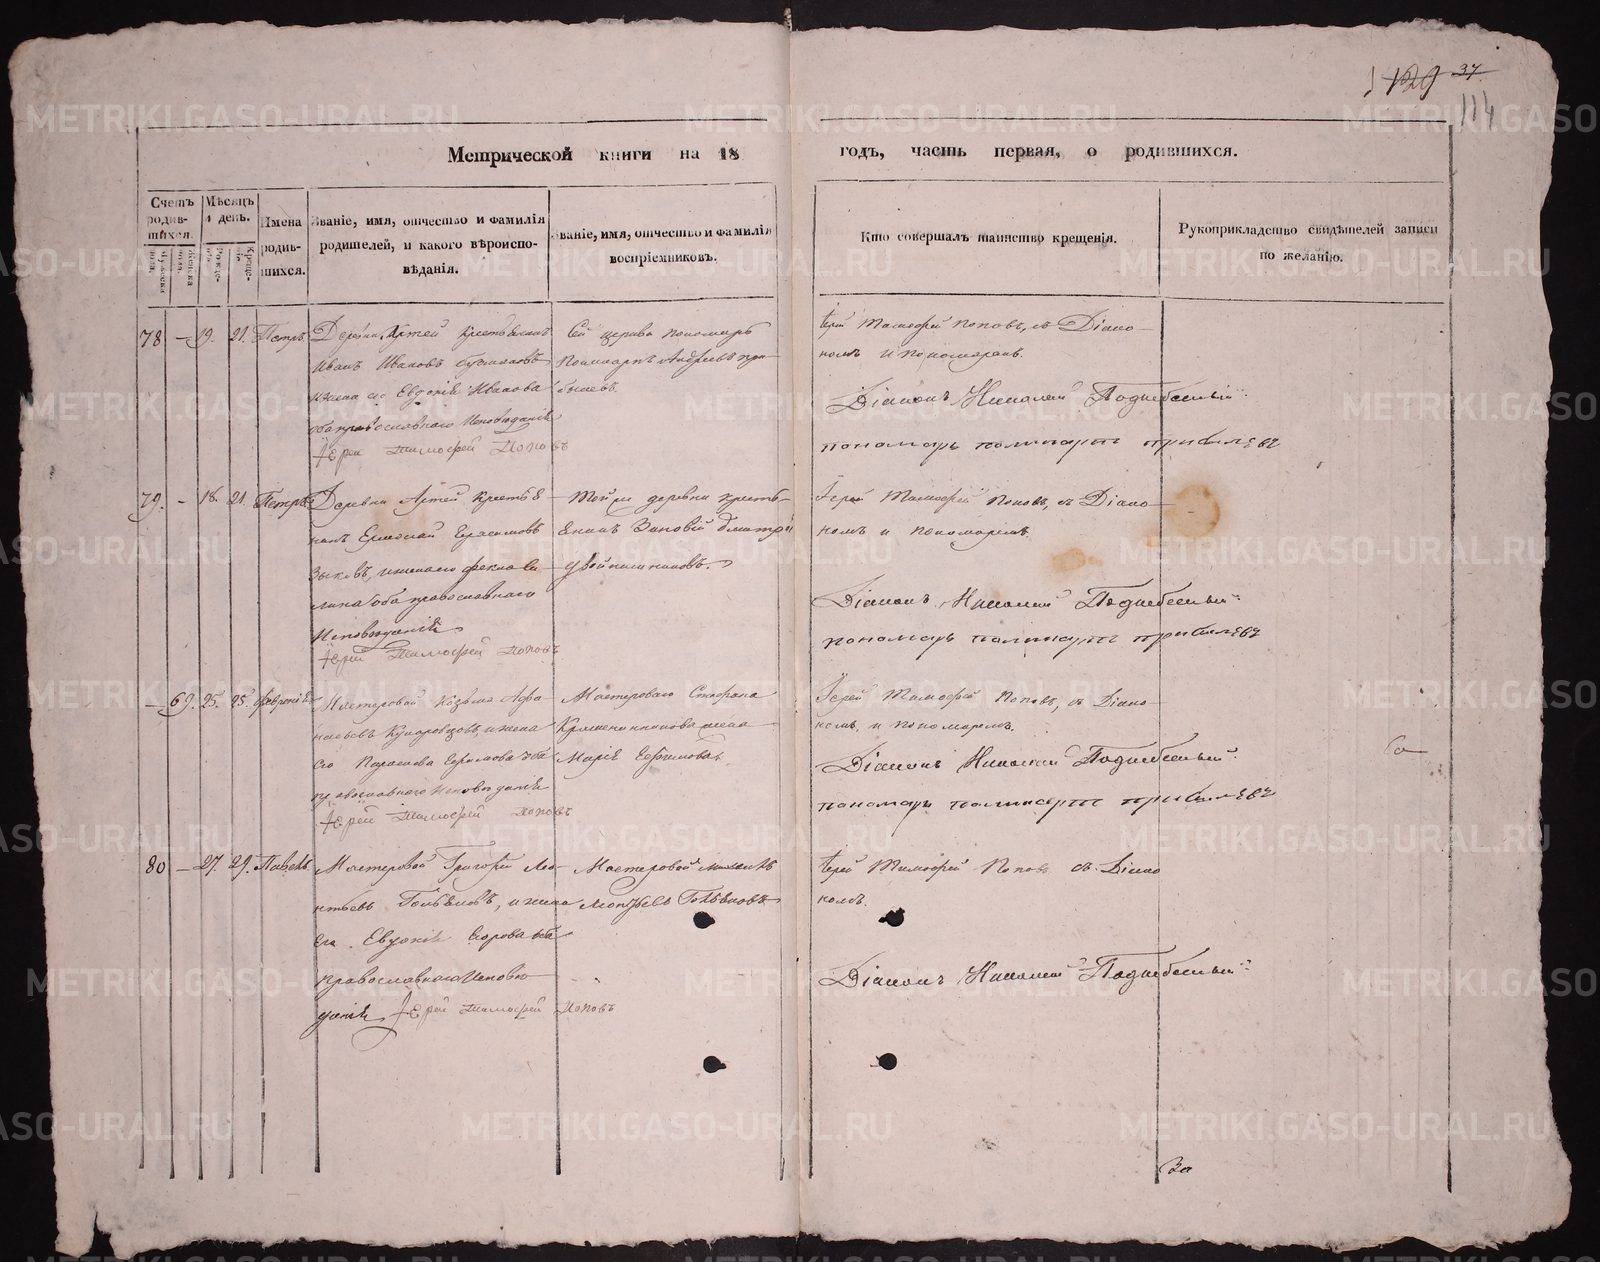 129 37.
114
Метрической книги на 18 годъ, часть первая, о родившихся.
Счетъ родив-шихся.
Мѣсяцъ и день.
Имена родив-шихся.
Званіе, имя, отчество и фамилія родителей, и какого вѣроиспо-вѣданія.
Званіе, имя, отчество и фамилія воспріемниковъ.
Кто совершалъ таинство крещенія.
Рукоприкладство свидѣтелей записи по желанію.
78 — 19. 21. Петръ
Деревни Артей крестьянинъ
Иванъ Ивановъ
и жена его Евдокія Иванова
оба православнаго Исповѣданія
Іерей Тимофей Поповъ
Сей церкви пономарь
Поликарпъ Андреевъ При-
былевъ.
Іерей Тимофей Поповъ, съ Діако-
номъ и пономаремъ.
Діаконъ Николай Поднебесный
пономарь поликарпъ прибылевъ
79. — 18. 21. Петръ
Деревни Артей крестья-
нинъ Ермолай Герасимовъ
Зыковъ, и жена его Фекла
оба православнаго
Исповѣданія
Іерей Тимофей Поповъ
Той же деревни кресть-
янинъ Зиновій Дмитрі
Двойнишниковъ.
Іерей Тимофей Поповъ, съ Діако-
номъ и пономаремъ.
Діаконъ Николай Поднебесный
пономарь поликарпъ прибылевъ
— 69. 25. 25. Февронія
Мастеровой Козьма Афа-
насьевъ и жена
его Парасковья Ефимова оба
православнаго Исповѣданія
Іерей Тимофей Поповъ
Мастероваго Стефана
жена
Марія Ефимова
Іерей Тимофей Поповъ, съ Діако-
номъ, и пономаремъ.
Діаконъ Николай Поднебесный
пономарь поликарпъ прибылевъ
80 — 27. 29. Павелъ
Мастеровой Григорій Лео-
нтьевъ Голѣновъ, и жена
его Евдокія Егорова оба
православнаго Исповѣ-
данія Іерей Тимофей Поповъ
Мастеровой Михаилъ
Леонтьевъ Голѣновъ
Іерей Тимофей Поповъ съ Діако
номъ.
Діаконъ Николай Поднебесный
За
METRIKI.GASO-URAL.RU